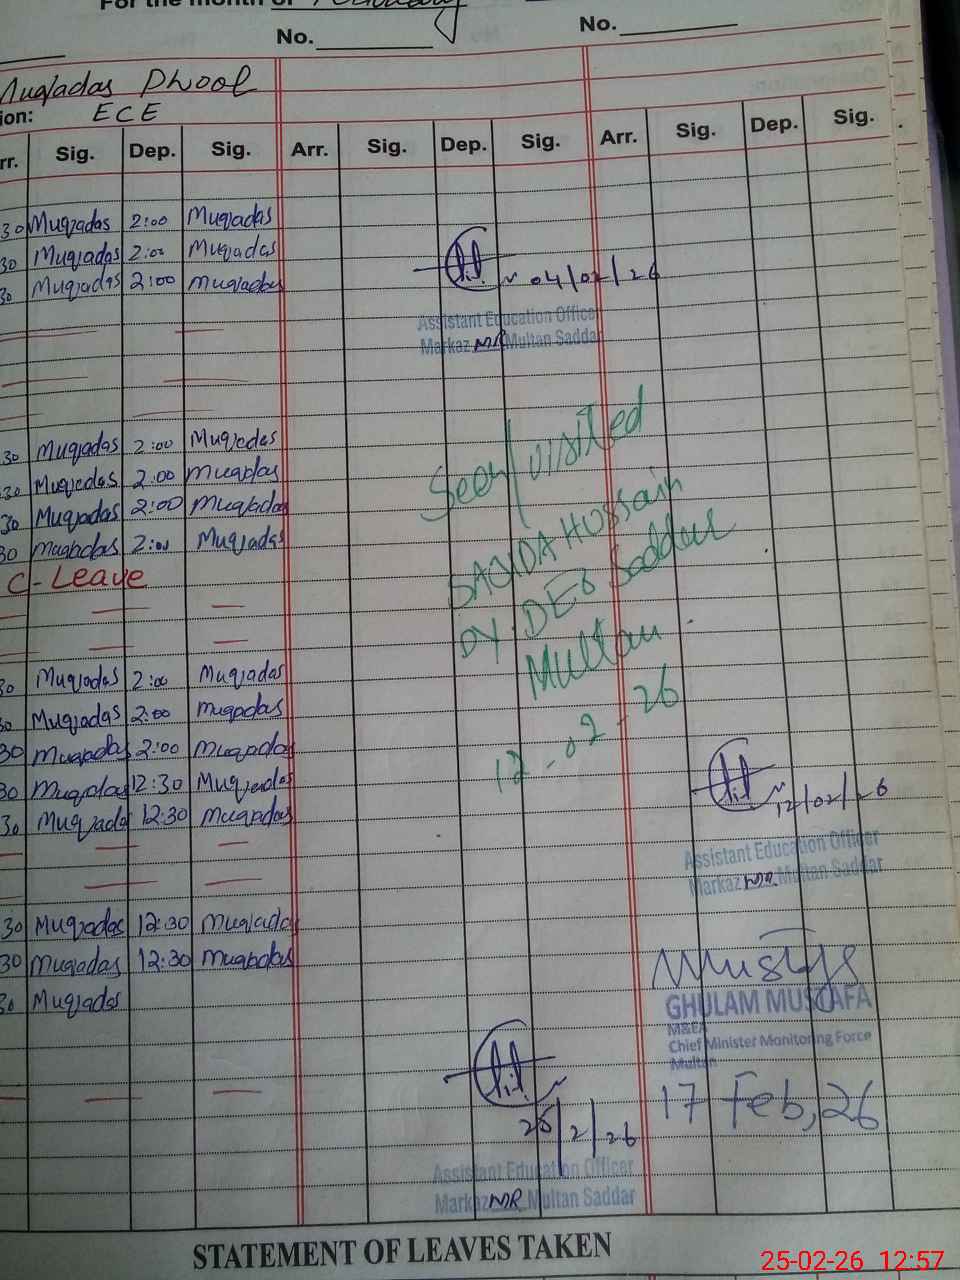 For the month of February
No.
No.
Muqadas Phool
ion: ECE
rr. Sig. Dep. Sig. Arr. Sig. Dep. Sig. Arr. Sig. Dep. Sig.
30 Muqadas 2:00 Muqadas
30 Muqadas 2:00 Muqadas
30 Muqadas 2:00 Muqadas
04/02/26
Assistant Education Officer
Markaz MR Multan Saddar
30 Muqadas 2:00 Muqadas
30 Muqadas 2:00 Muqadas
30 Muqadas 2:00 Muqadas
30 Muqadas 2:00 Muqadas
C-Leave
Seen/visited
SAJIDA HUSSain
DY.DEO Saddar
Multan
12-02-26
30 Muqadas 2:00 Muqadas
30 Muqadas 2:00 Muqadas
30 Muqadas 2:00 Muqadas
30 Muqadas 12:30 Muqadas
30 Muqadas 12:30 Muqadas
12/02/26
Assistant Education Officer
Markaz MR Multan Saddar
30 Muqadas 12:30 Muqadas
30 Muqadas 12:30 Muqadas
30 Muqadas
GHULAM MUSTAFA
M&EA
Chief Minister Monitoring Force
Multan
17 Feb, 26
2/26
Assistant Education Officer
Markaz MR Multan Saddar
STATEMENT OF LEAVES TAKEN
25-02-26 12:57